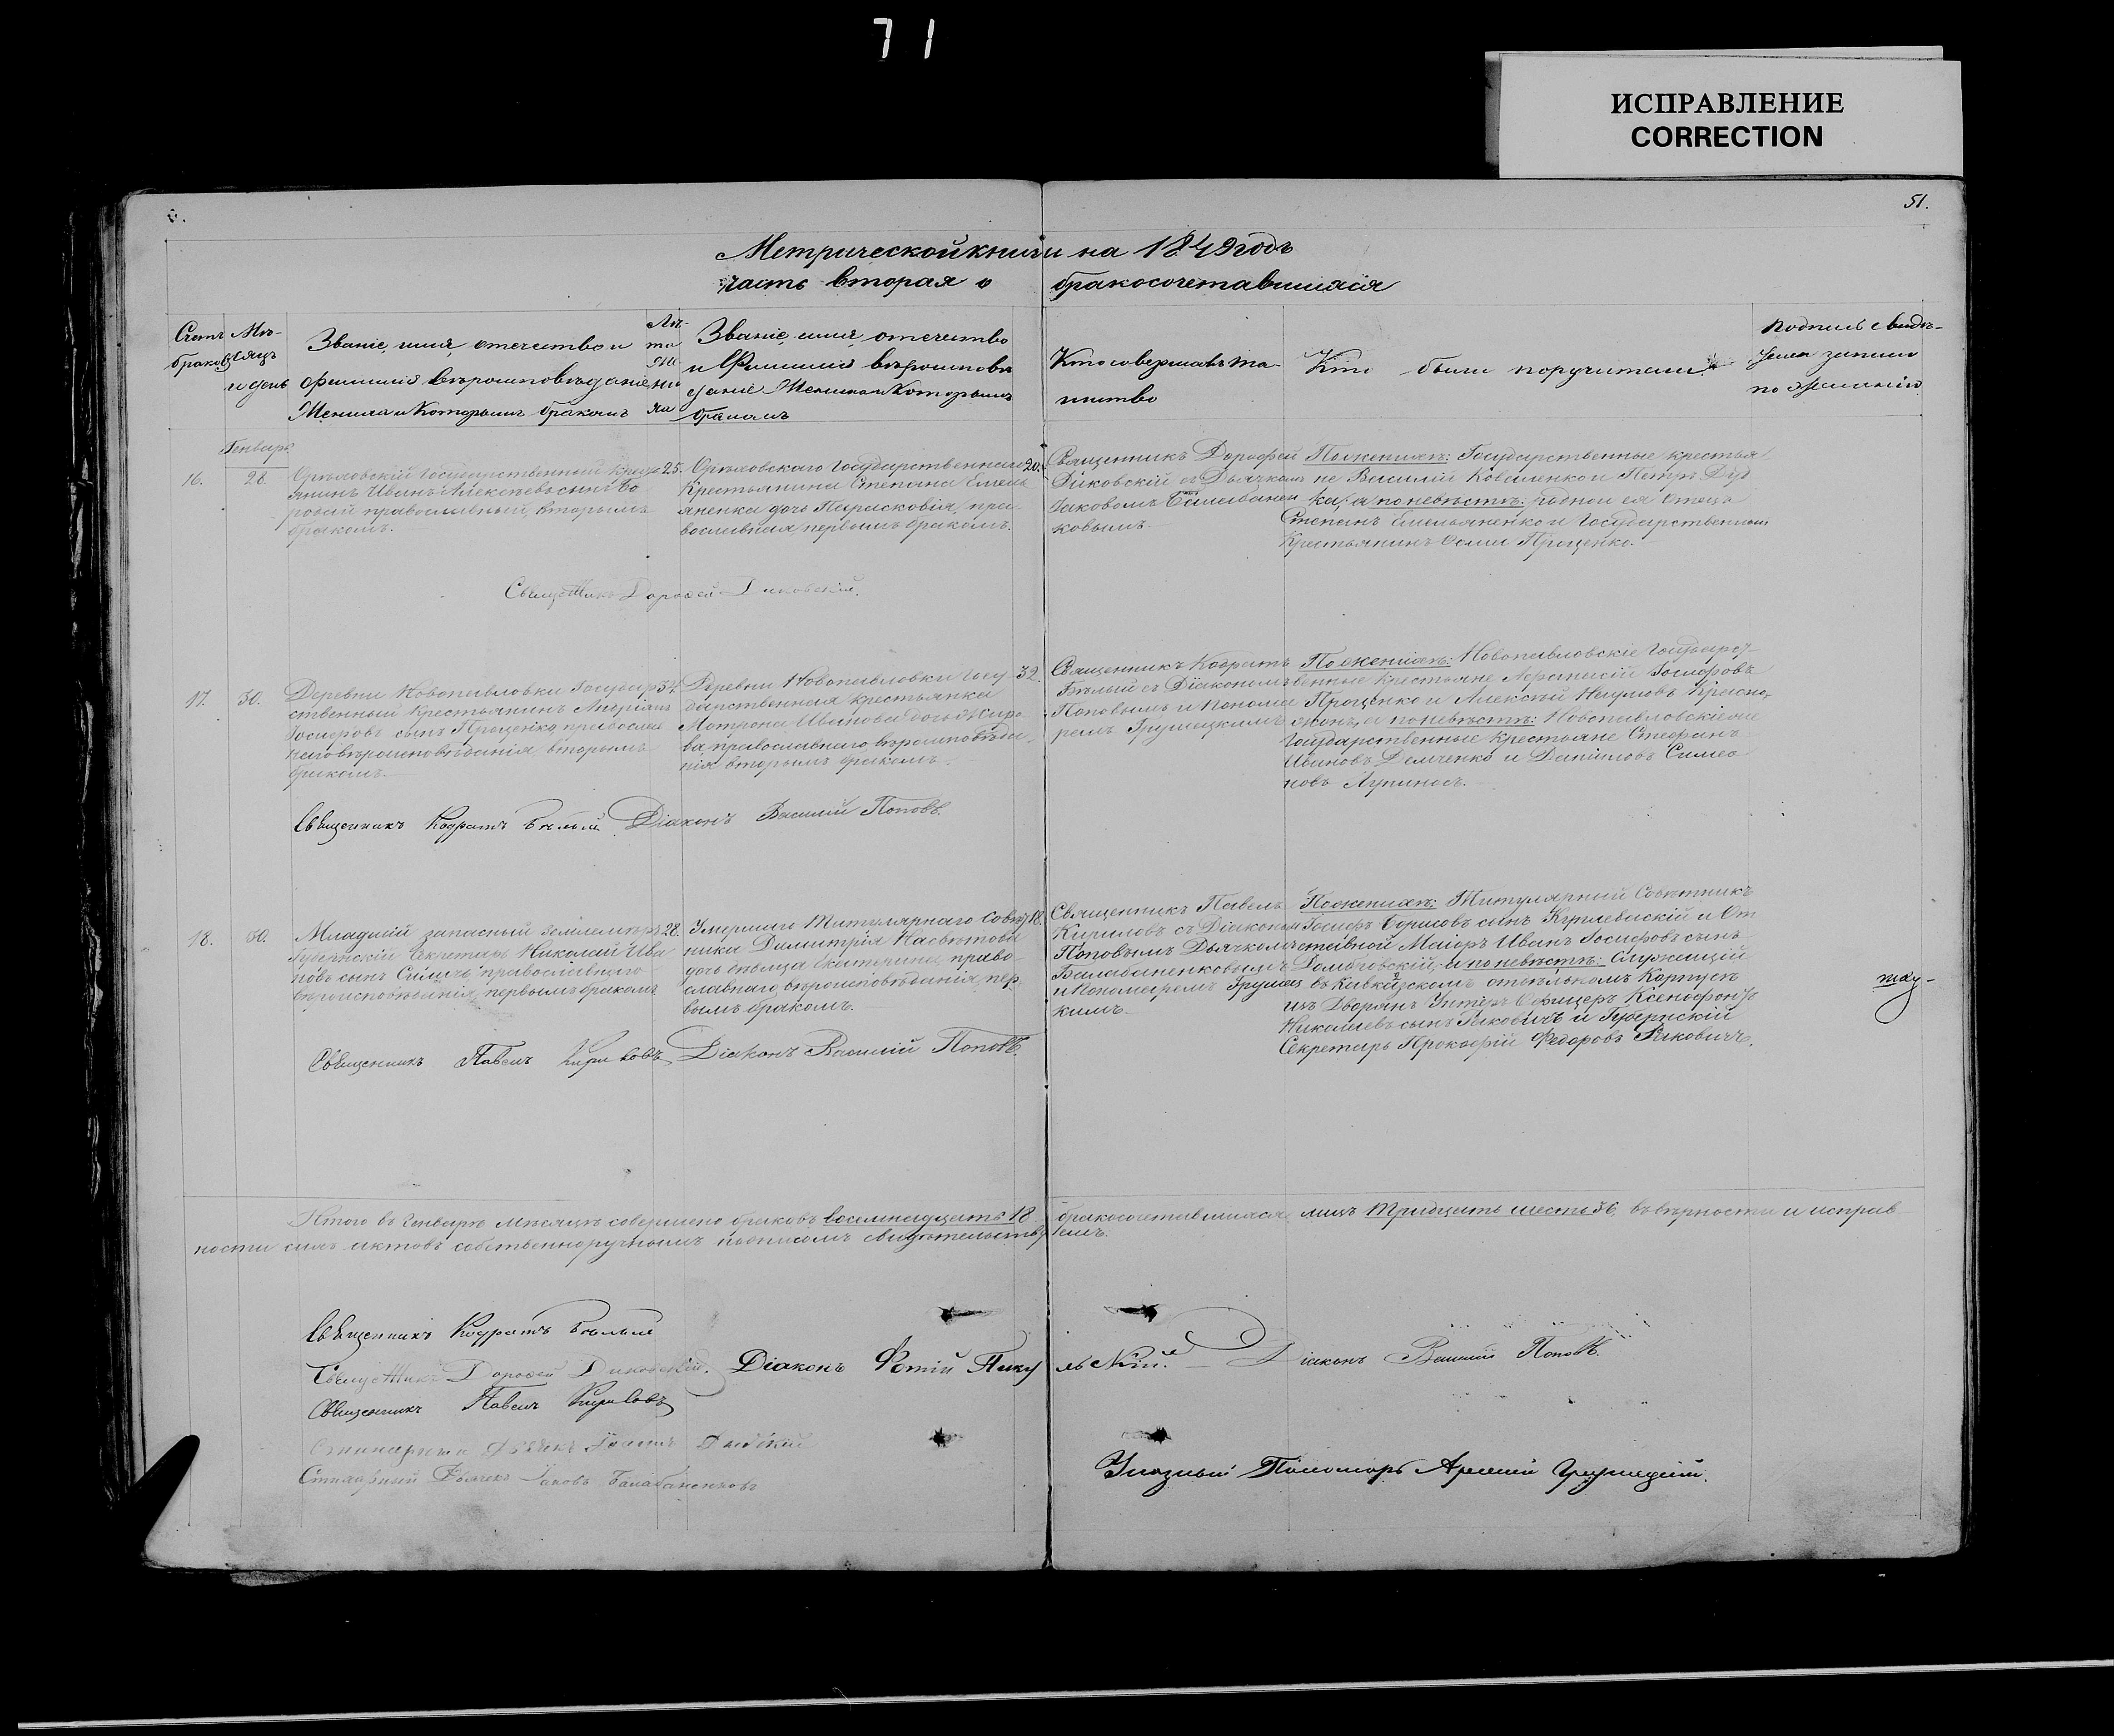 71
ИСПРАВЛЕНИЕ
CORRECTION
51.
Метрической книги на 1849 годъ
часть вторая о бракосочетавшихся
Счетъ браковъ
Мѣсяцъ и день
Званіе, имя, отечество и
фамилія вѣроисповѣданіе
Жениха и которымъ бракомъ
Лѣта Жениха
Званіе, имя, отечество
и Фамилія вѣроисповѣ
даніе Жениха и которымъ
бракомъ
Кто совершалъ та-
инство
Кто были поручители
Подпись свидѣ-
телей записи
по желанію
Генварь
16.
28.
Орѣховскій Государственный Крестья
янинъ Иванъ Алексѣевъ сынъ Бо
ровый православный, вторымъ
бракомъ.
25.
Орѣховскаго Государственнаго
Крестьянина Степана Емель
яненка дочь Парасковія, пра
вославная, первымъ бракомъ.
20.
Священникъ Дорофей
Диковскій съ Дьячкомъ
Іаковомъ Балабанен
ковымъ.
По женихѣ: Государственные крестья
не Василій Коваленко и Петръ Дуд
ка, а по невѣстѣ: родной ея отецъ
Степанъ Емельяненко и Государственный
Крестьянинъ Ѳома Проценко.
Священникъ Дорофей Диковскій.
17.
30.
Деревни Новопавловки Государ
ственный крестьянинъ
Іосифовъ сынъ Проценко, православ
наго вѣроисповѣданія, вторымъ
бракомъ.
34.
Деревни Новопавловки Госу
дарственная крестьянка
Мотрона Иванова дочь
ва православнаго вѣроисповѣда
нія вторымъ бракомъ.
32.
Священникъ Кодратъ
Бѣлый съ Діакономъ
Поповымъ и Понома
ремъ Грушецкимъ
По женихѣ: Новопавловскіе Государст-
венные крестьяне Афанасій Іосифовъ
Проценко и Алексѣй Наумовъ Красно
а по невѣстѣ: Новопавловскіе же
Государственные крестьяне Стефанъ
Ивановъ Демченко и Даніиловъ Симео
новъ Лупиносъ.
Священникъ Кодратъ Бѣлый Діаконъ Василій Поповъ.
18.
30.
Младшій запасный землемѣръ
Губернскій Секретарь Николай Ива
новъ сынъ Симичъ православнаго
вѣроисповѣданія, первымъ бракомъ
28.
Умершаго Титулярнаго Совѣт
ника Димитрія Насвѣтова
дочь дѣвица Екатерина, право-
славнаго вѣроисповѣданія, пер
вымъ бракомъ.
18.
Священникъ Павелъ
Кириловъ съ Діакономъ
Поповымъ Дьячкомъ
Балабаненковымъ
и Пономаремъ Грушец
кимъ.
По женихѣ: Титулярный Совѣтникъ
Іосифъ Борисовъ сынъ и От
ставной Маіоръ Иванъ Іосифовъ сынъ
Домбровскій, а по невѣстѣ: Служащій
въ Кавказскомъ отдѣльномъ Корпусѣ
изъ Дворянъ Унтеръ Офицеръ Ксенофонтъ
Николаевъ сынъ Яковичъ и Губернскій
Секретарь Прокофій Федоровъ Яковичъ.
Священникъ Павелъ Кириловъ Діаконъ Василій Поповъ.
Итого въ Генварѣ мѣсяцѣ совершено браковъ восемнадцать 18 бракосочетавшихся лицъ тридцать шесть 36, въ вѣрности и исправ
ности сихъ актовъ собственноручнымъ подписомъ свидѣтельствуемъ.
Священникъ Кодратъ Бѣлый
Священникъ Дорофей Диковскій. Діаконъ Фотій Пикульскій. Діаконъ Василій Поповъ.
Священникъ Павелъ Кириловъ
Стихарный Дьячекъ Іаковъ Балабаненковъ
Указный Пономарь Арсеній Грушецкій.